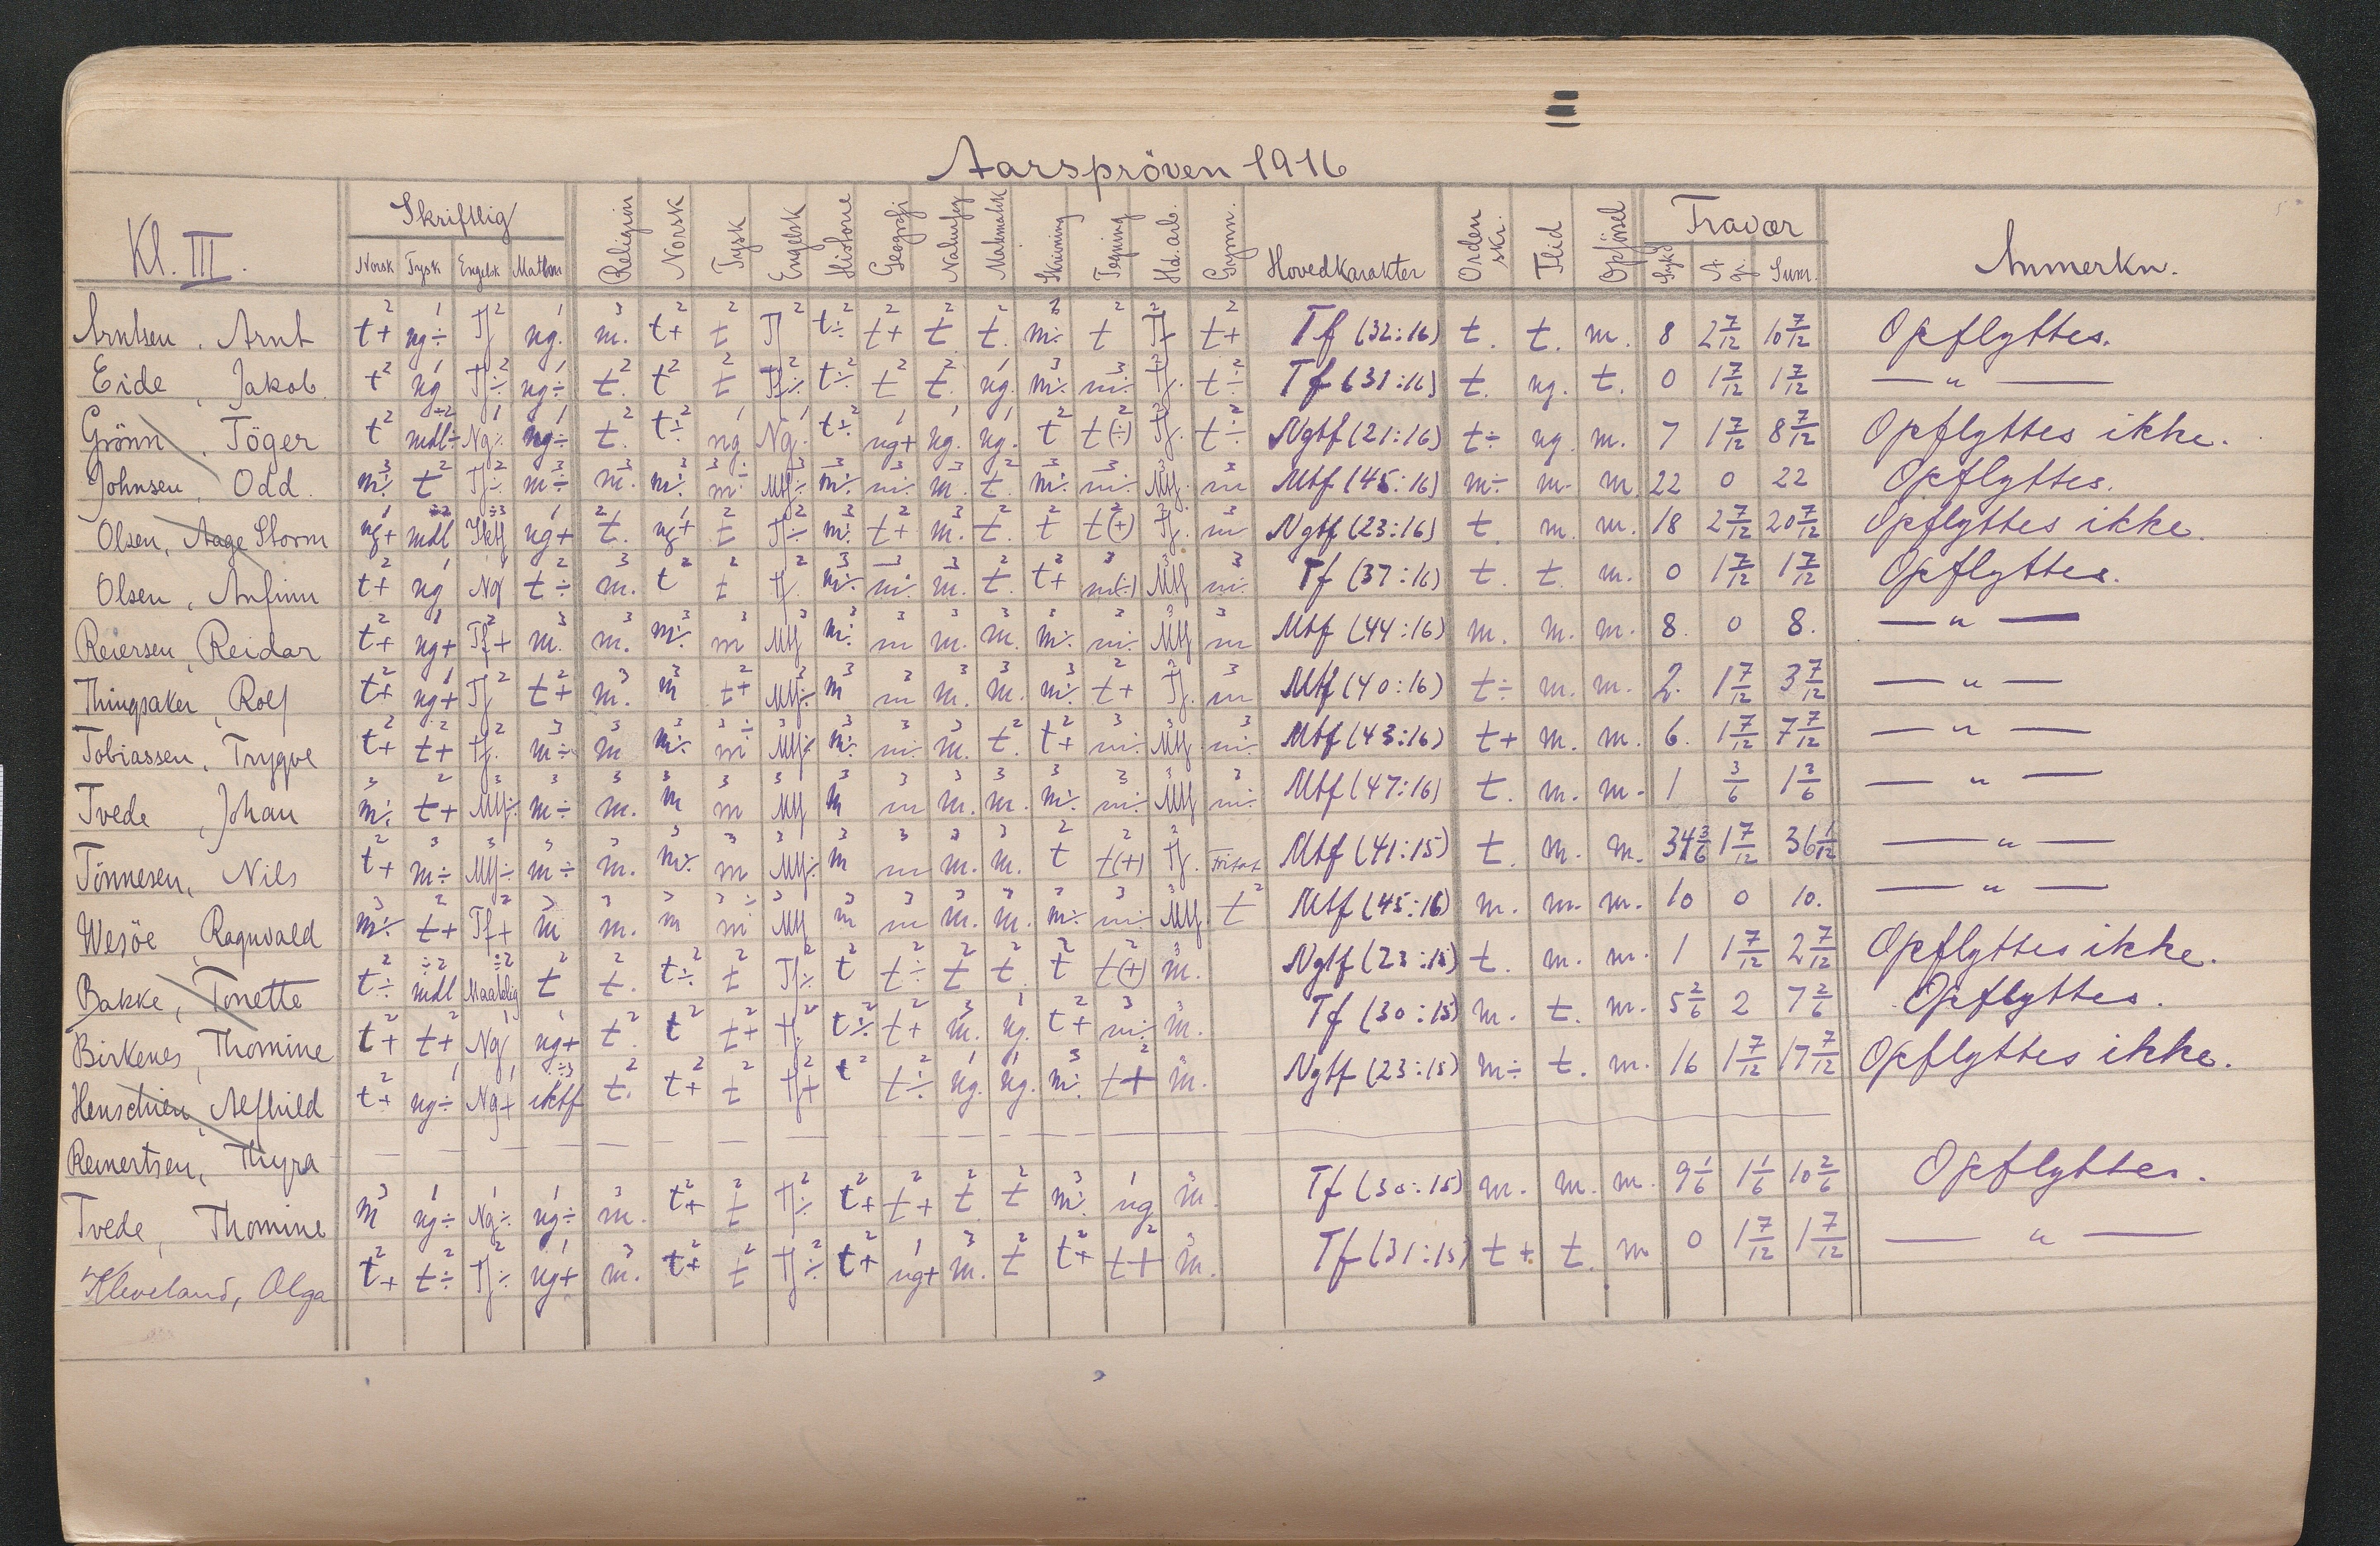 Aarspröven 1916
Kl. III. Skriftlig Religion Norsk Tysk Engelsk Historie Geografi Naturfag Matematik Skrivning Tegning Hd.arb. Gymn. Hovedkarakter Orden skr. Flid Opførsel Fravær Anmerkn.
Norsk Tysk Engelsk Mathm Sykd A gr. Sum.
Arntsen, Arnt t+ ng÷ Tf ng. m. t+ t Tf t÷ t+ t t. m÷ t Tf t+ Tf (32:16) t. t. m. 8 2 7/12 10 7/12 Opflyttes.
Eide, Jakob t ng Tf÷ ng÷ t. t t Tf÷ t÷ t t. ng. m÷ m÷ Tf. t÷ Tf (31:16) t. ng. t. 0 1 7/12 1 7/12 — " —
Grönn, Töger t mdl÷ Ng÷ ng÷ t. t÷ ng Ng. t÷ ng+ ng. ng. t t(÷) Tf. t÷ Ngtf (21:16) t÷ ng. m. 7 1 7/12 8 7/12 Opflyttes ikke.
Johnsen, Odd. m÷ t Tf÷ m÷ m. m÷ m÷ Mtf÷ m÷ m÷ m. t. m÷ m÷ Mtf. m Mtf (45:16) m÷ m. m. 22 0 22 Opflyttes.
Olsen, Aage Storm ng+ mdl Iktf ng+ t. ng+ t Tf÷ m÷ t+ m. t. t t(+) Tf. m Ngtf (23:16) t. m. m. 18 2 7/12 20 7/12 Opflyttes ikke.
Olsen, Anfinn t+ ng Ng t÷ m. t t Tf. m÷ m÷ m. t. t+ m(÷) Mtf m÷ Tf (37:16) t. t. m. 0 1 7/12 1 7/12 Opflyttes.
Reiersen, Reidar t+ ng+ Tf+ m. m. m÷ m Mtf m÷ m m. m. m÷ m÷ Mtf m Mtf (44:16) m. m. m. 8. 0 8. — " —
Thingsaker, Rolf t+ ng+ Tf t+ m. m t+ Mtf÷ m m m. m. m÷ t+ Tf. m Mtf (40:16) t÷ m. m. 2. 1 7/12 3 7/12 — " —
Tobiassen, Trygve t+ t+ Tf. m÷ m m÷ m÷ Mtf÷ m÷ m÷ m. t. t+ m÷ Mtf m÷ Mtf (43:16) t+ m. m. 6. 1 7/12 7 7/12 — " —
Tvede, Johan m÷ t+ Mtf÷ m÷ m. m m Mtf m m m. m. m÷ m÷ Mtf m÷ Mtf (47:16) t. m. m. 1 3/6 1 3/6 — " —
Tönnesen, Nils t+ m÷ Mtf÷ m÷ m. m÷ m Mtf÷ m m m. m. t t(+) Tf. Fritat Mtf (41:15) t. m. m. 34 3/6 1 7/12 36 1/12 — " —
Wesöe, Ragnvald m÷ t+ Tf+ m m. m m÷ Mtf m m m. m. m÷ m÷ Mtf. t Mtf (45:16) m. m. m. 10 0 10. — " —
Bakke, Tonette t÷ mdl Maadelig t t. t÷ t Tf÷ t t÷ t t. t t(+) m. Ngtf (23:15) t. m. m. 1 1 7/12 2 7/12 Opflyttes ikke.
Birkenes, Thomine t+ t+ Ng ng+ t. t t+ Tf. t÷ t+ m. ng. t+ m÷ m. Tf (30:15) m. t. m. 5 2/6 2 7 2/6 Opflyttes.
Henschien, Alfhild t+ ng÷ Ng+ iktf t. t+ t Tf+ t t÷ ng. ng. m÷ t+ m. Ngtf (23:15) m÷ t. m. 16 1 7/12 17 7/12 Opflyttes ikke.
Reinertsen, Thyra — — — — — — — —
Tvede, Thomine m ng÷ Ng÷ ng÷ m. t+ t Tf÷ t+ t+ t t m÷ ng m. Tf (30:15) m. m. m. 9 1/6 1 1/6 10 2/6 Opflyttes.
Kleveland, Olga t+ t÷ Tf÷ ng+ m. t+ t Tf÷ t+ ng+ m. t t+ t+ m. Tf (31:15) t+ t. m 0 1 7/12 1 7/12 — " —